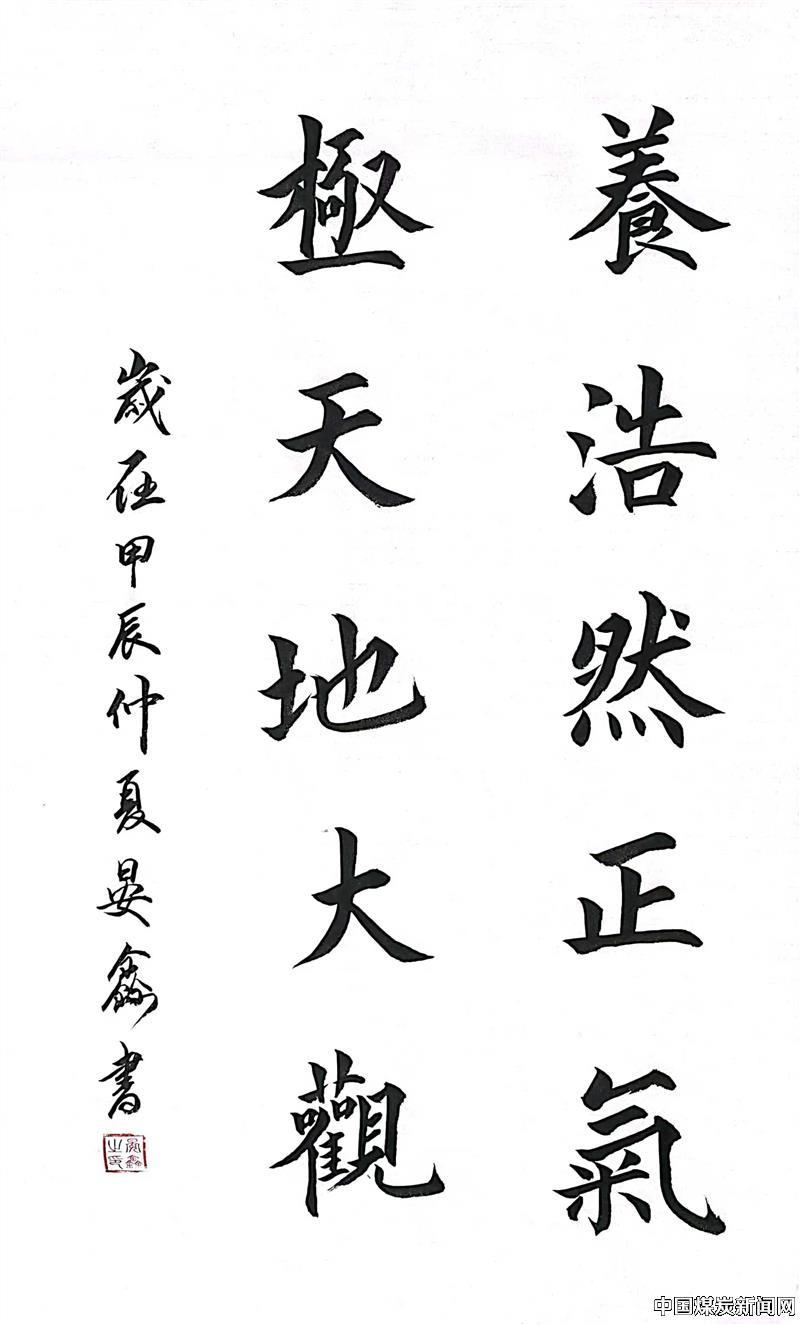 養浩然正氣
極天地大觀
歲在甲辰仲夏晏鑫書
晏鑫之印
中国煤炭新闻网